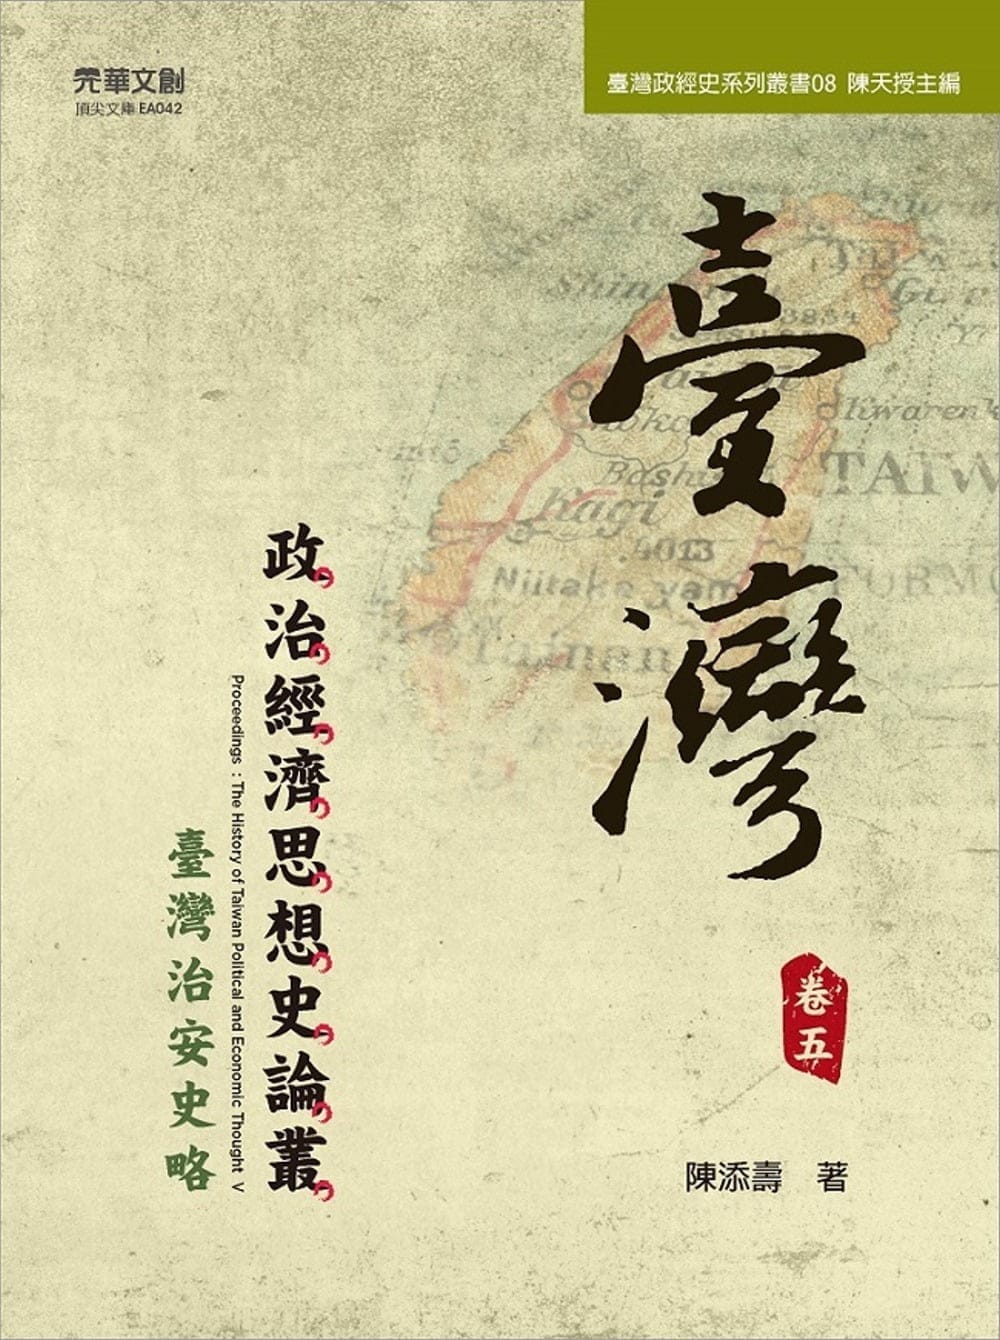 元華文創
頂尖文庫 EA042
臺灣政經史系列叢書08 陳天授主編
臺灣
政治經濟思想史論叢
Proceedings : The History of Taiwan Political and Economic Thought V
臺灣治安史略
卷五
陳添壽 著
Shin
3884
Shoko
Kwaren
TAIW
Bashi
Kagi
4013
Niitaka yam
FORMO
Tainan